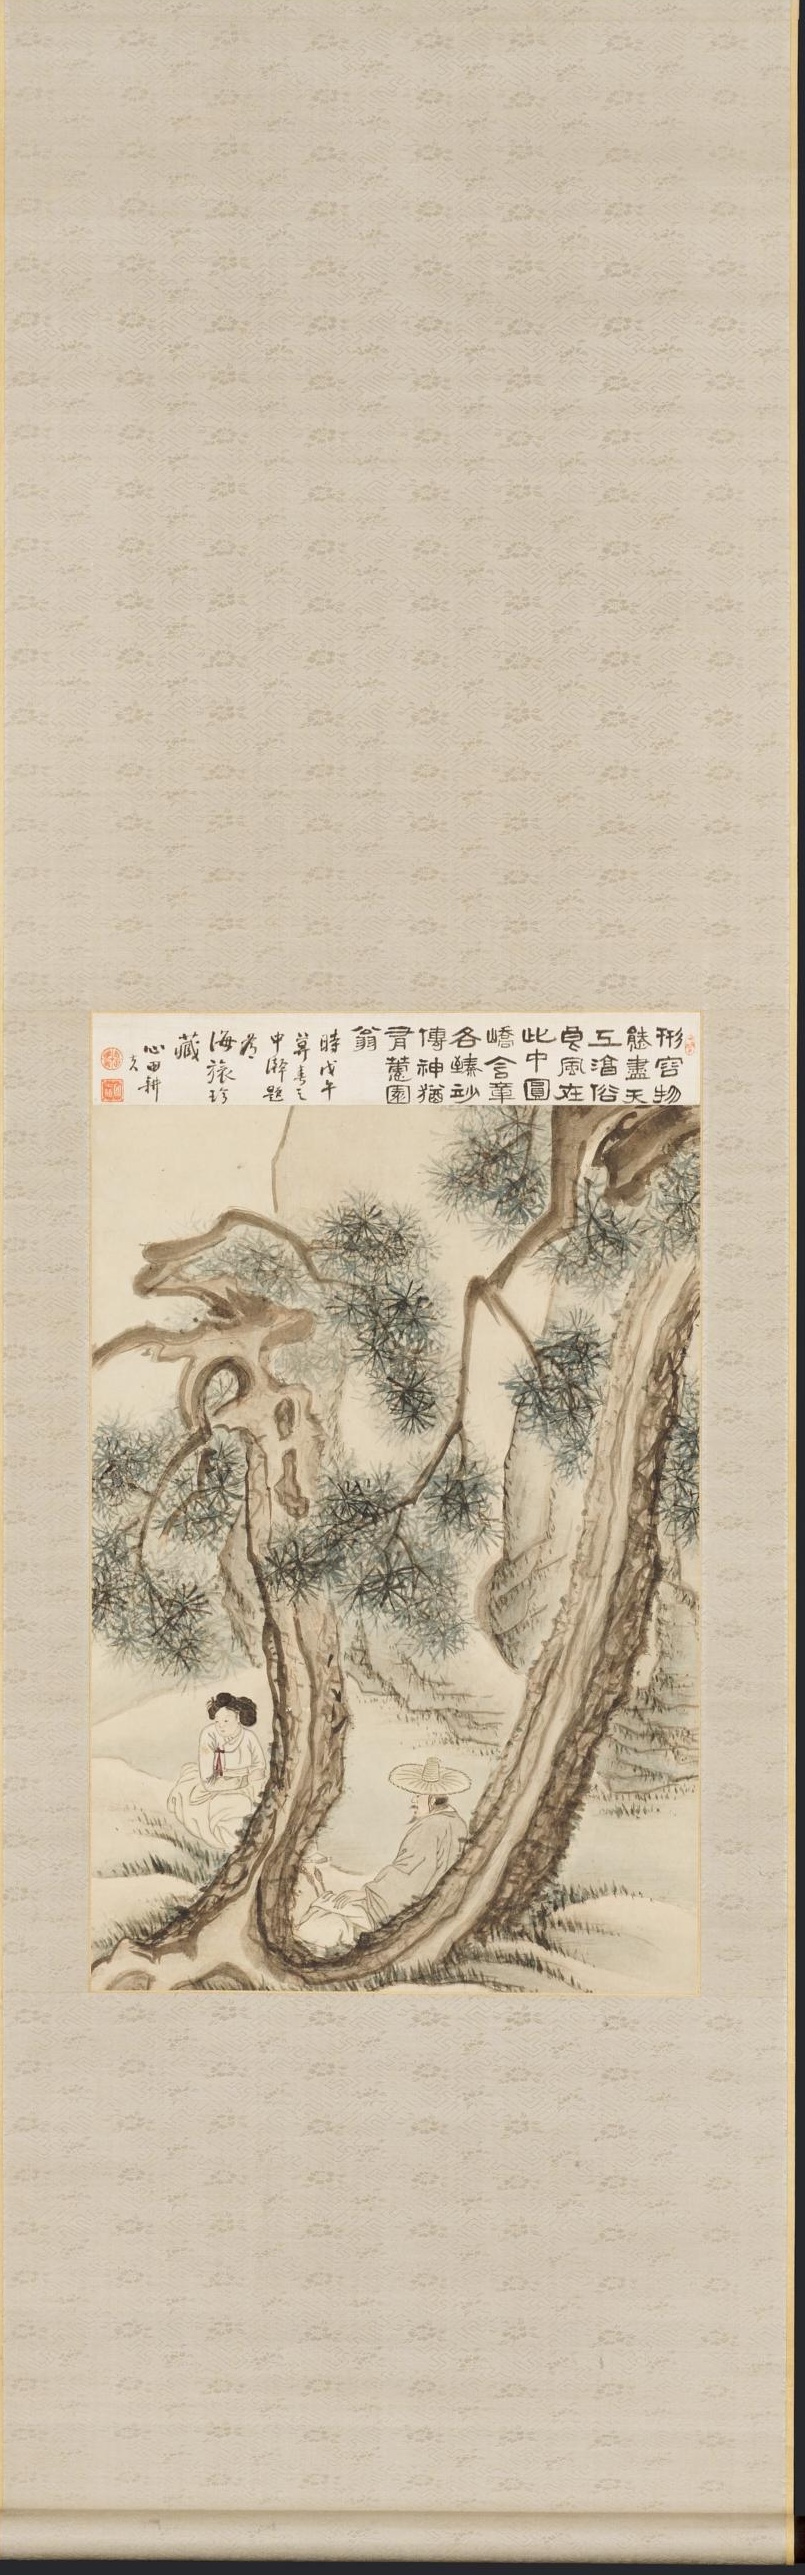 形容物
態盡天
工俗
民風在
此中圓
嶠含章
各臻妙
傳神猶
有蕙園
翁
時戊午
暮春之
中澣題
為
海旅珍
藏
心田耕
夫